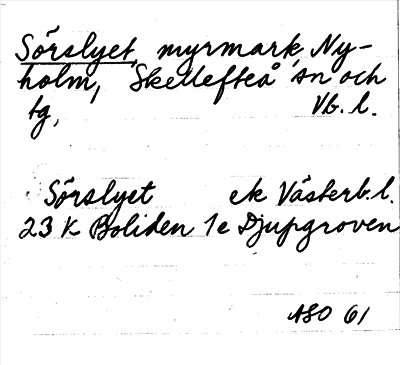 Sörslyet, myrmark, Ny-
holm, Skellefteå sn och
tg, Vb. l.
Sörslyet ek Västerb. l.
23 K Boliden 1e Djupgroven
ASO 61